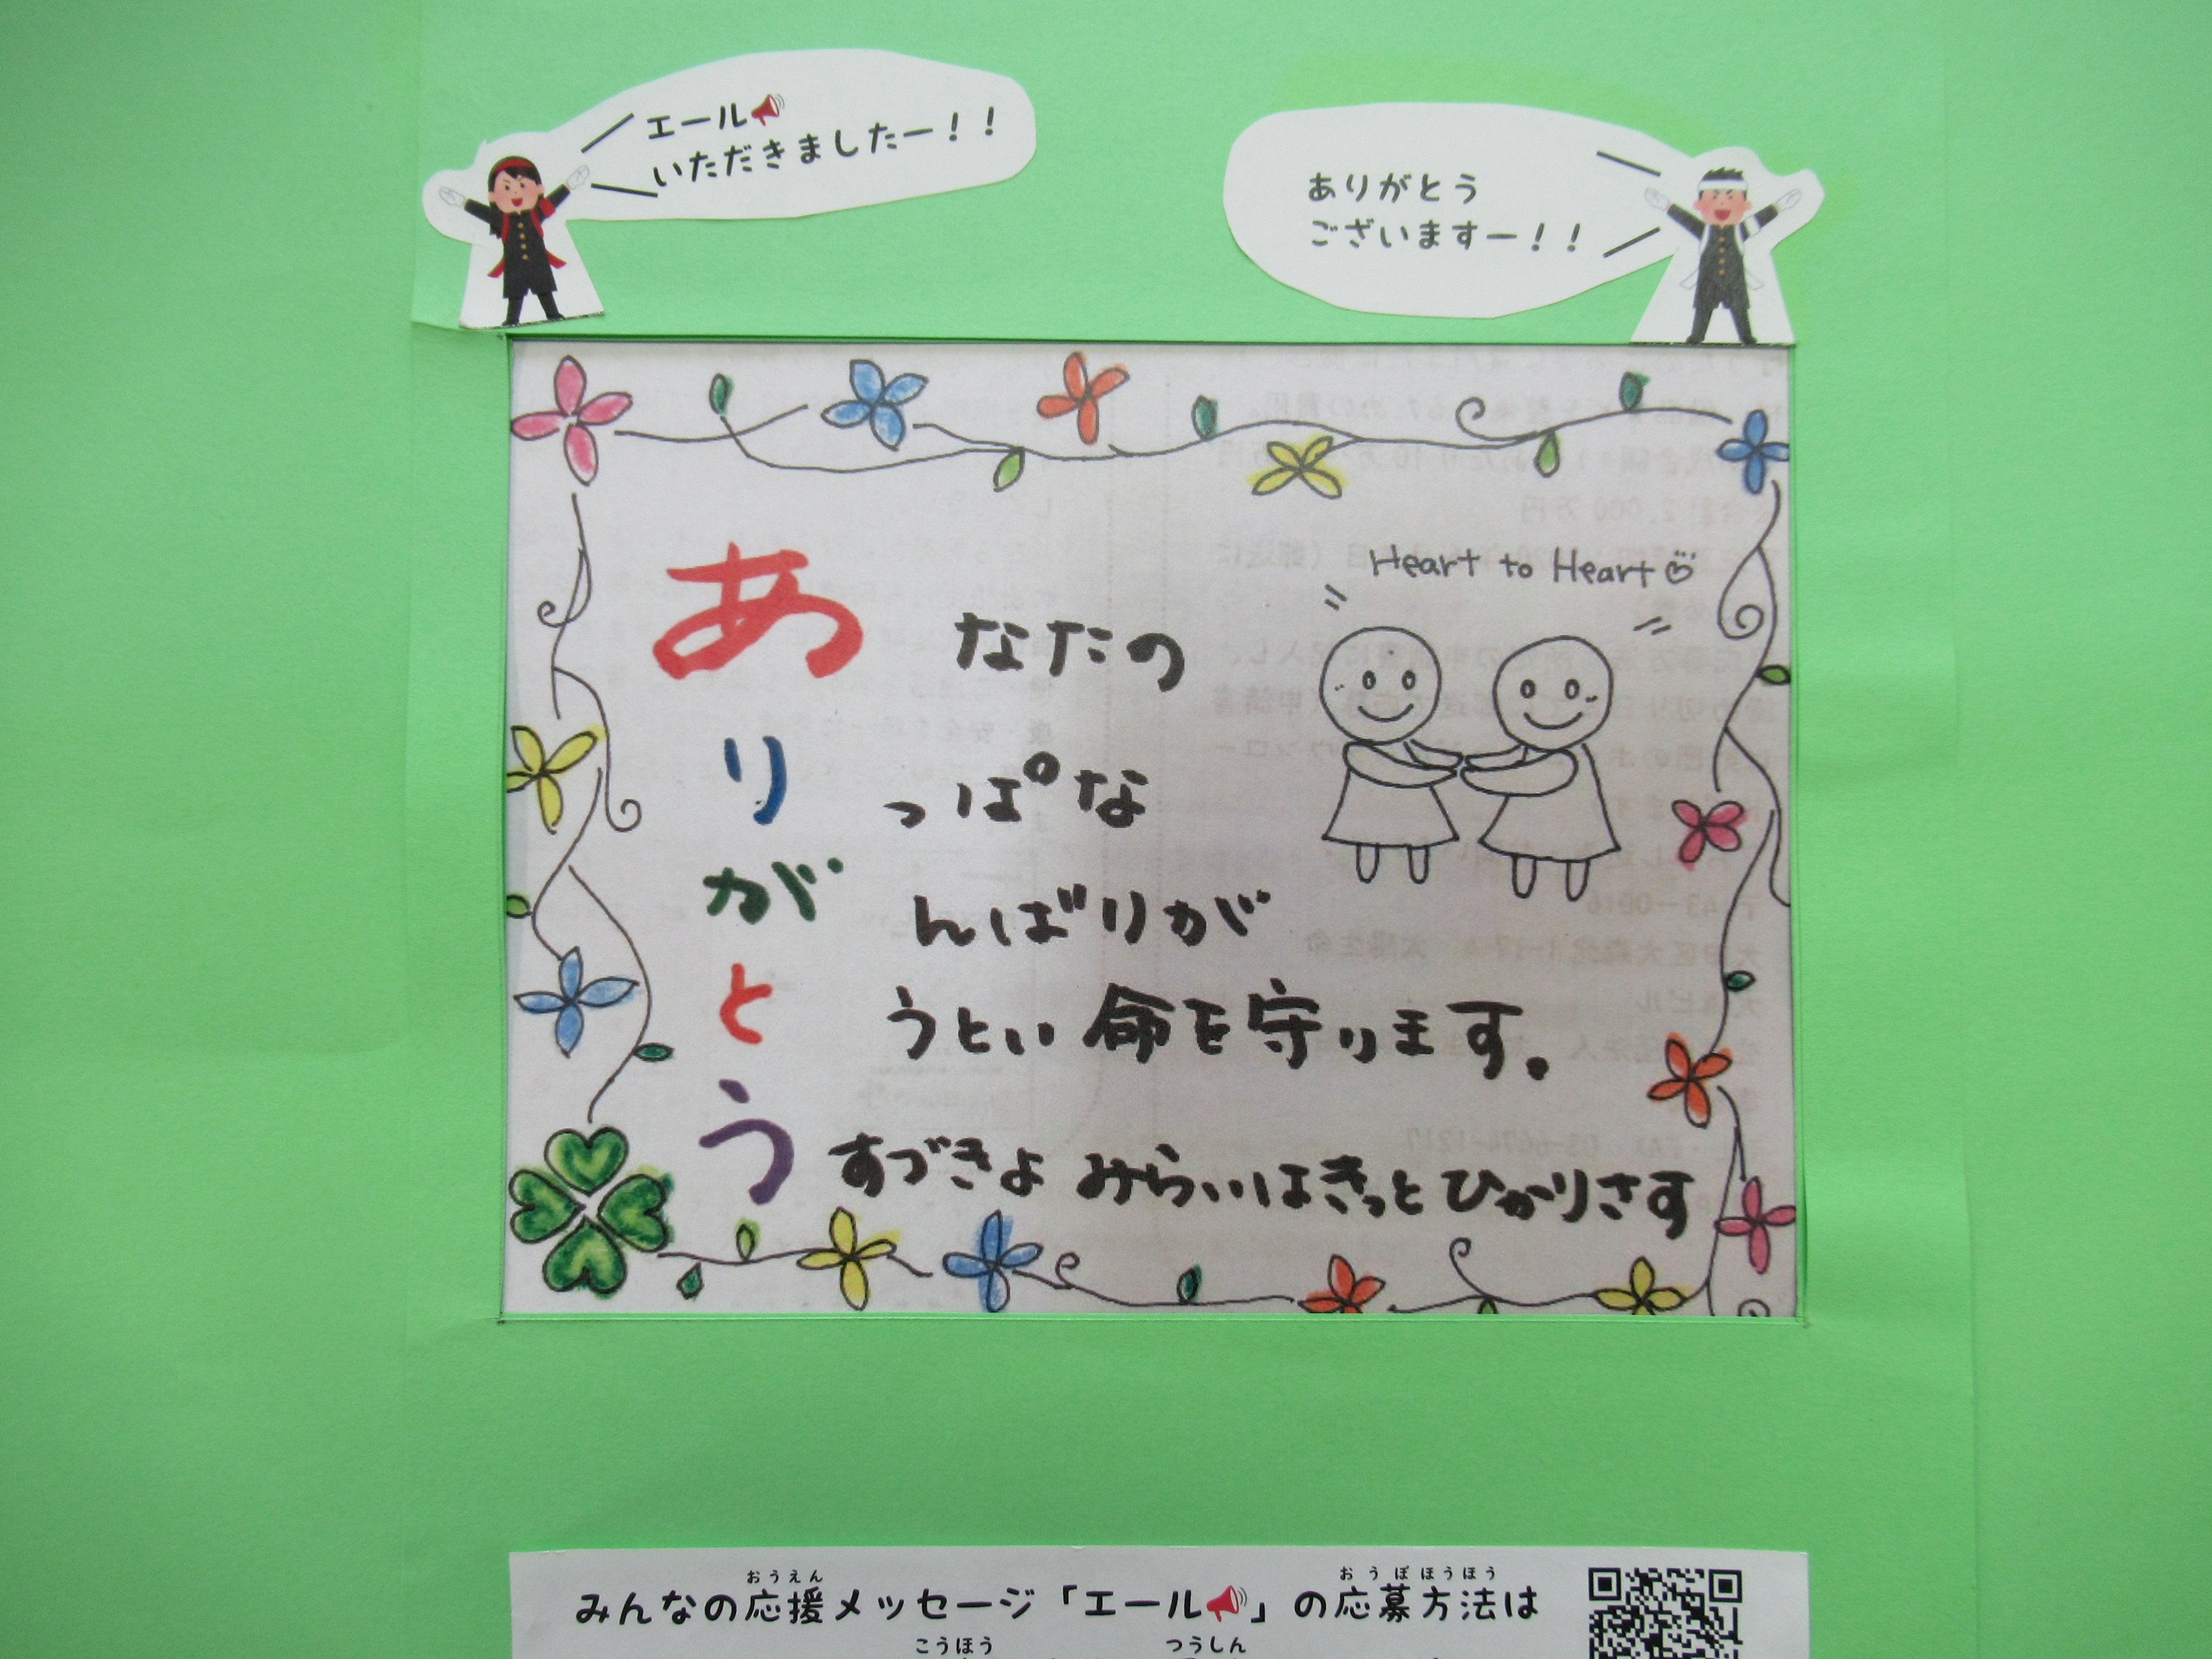 エール
いただきましたー！！
ありがとう
ございますー！！
Heart to Heart
あなたの
りっぱな
がんばりが
とうとい命を守ります。
うすづきよ みらいはきっとひかりさす
おうえん おうぼほうほう
みんなの応援メッセージ「エール」の応募方法は
こうほう つうしん